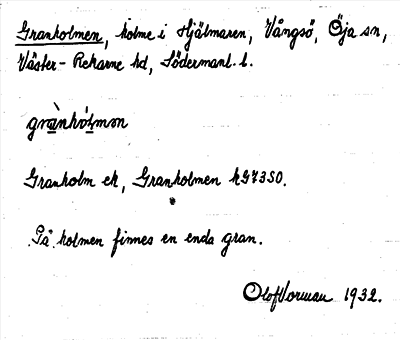 Granholmen, holme i Hjälmaren, Vångsö, Öja sn,
Väster-Rekarne hd, Södermanl. l.
grànhólmən
Granholm ek, Granholmen kG7350.
På holmen finnes en enda gran.
Olof Vorman 1932.